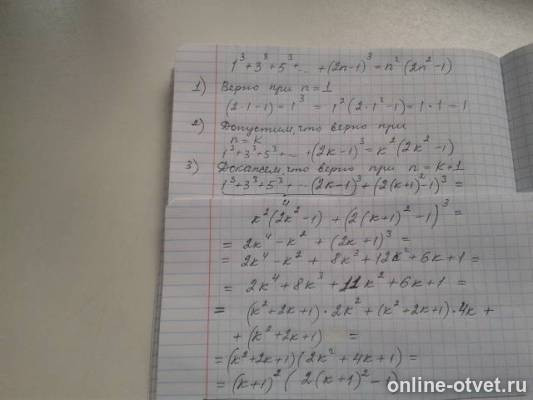 1³+3³+5³+...+(2n-1)³=n²(2n²-1)
1) Верно при n=1
(2·1-1)=1³=1²(2·1²-1)=1·1=1
2) Допустим, что верно при
n=k
1³+3³+5³+...+(2k-1)³=k²(2k²-1)
3) Докажем, что верно при n=k+1
1³+3³+5³+...(2k-1)³+(2(k+1)²-1)³=
k²(2k²-1)+(2(k+1)²-1)³=
=2k⁴-k²+(2k+1)³=
=2k⁴-k²+8k³+12k²+6k+1=
=2k⁴+8k³+11k²+6k+1=
=(k²+2k+1)·2k²+(k²+2k+1)·4k+
+(k²+2k+1)=
=(k²+2k+1)(2k²+4k+1)=
=(k+1)²(2(k+1)²-1)
online-otvet.ru